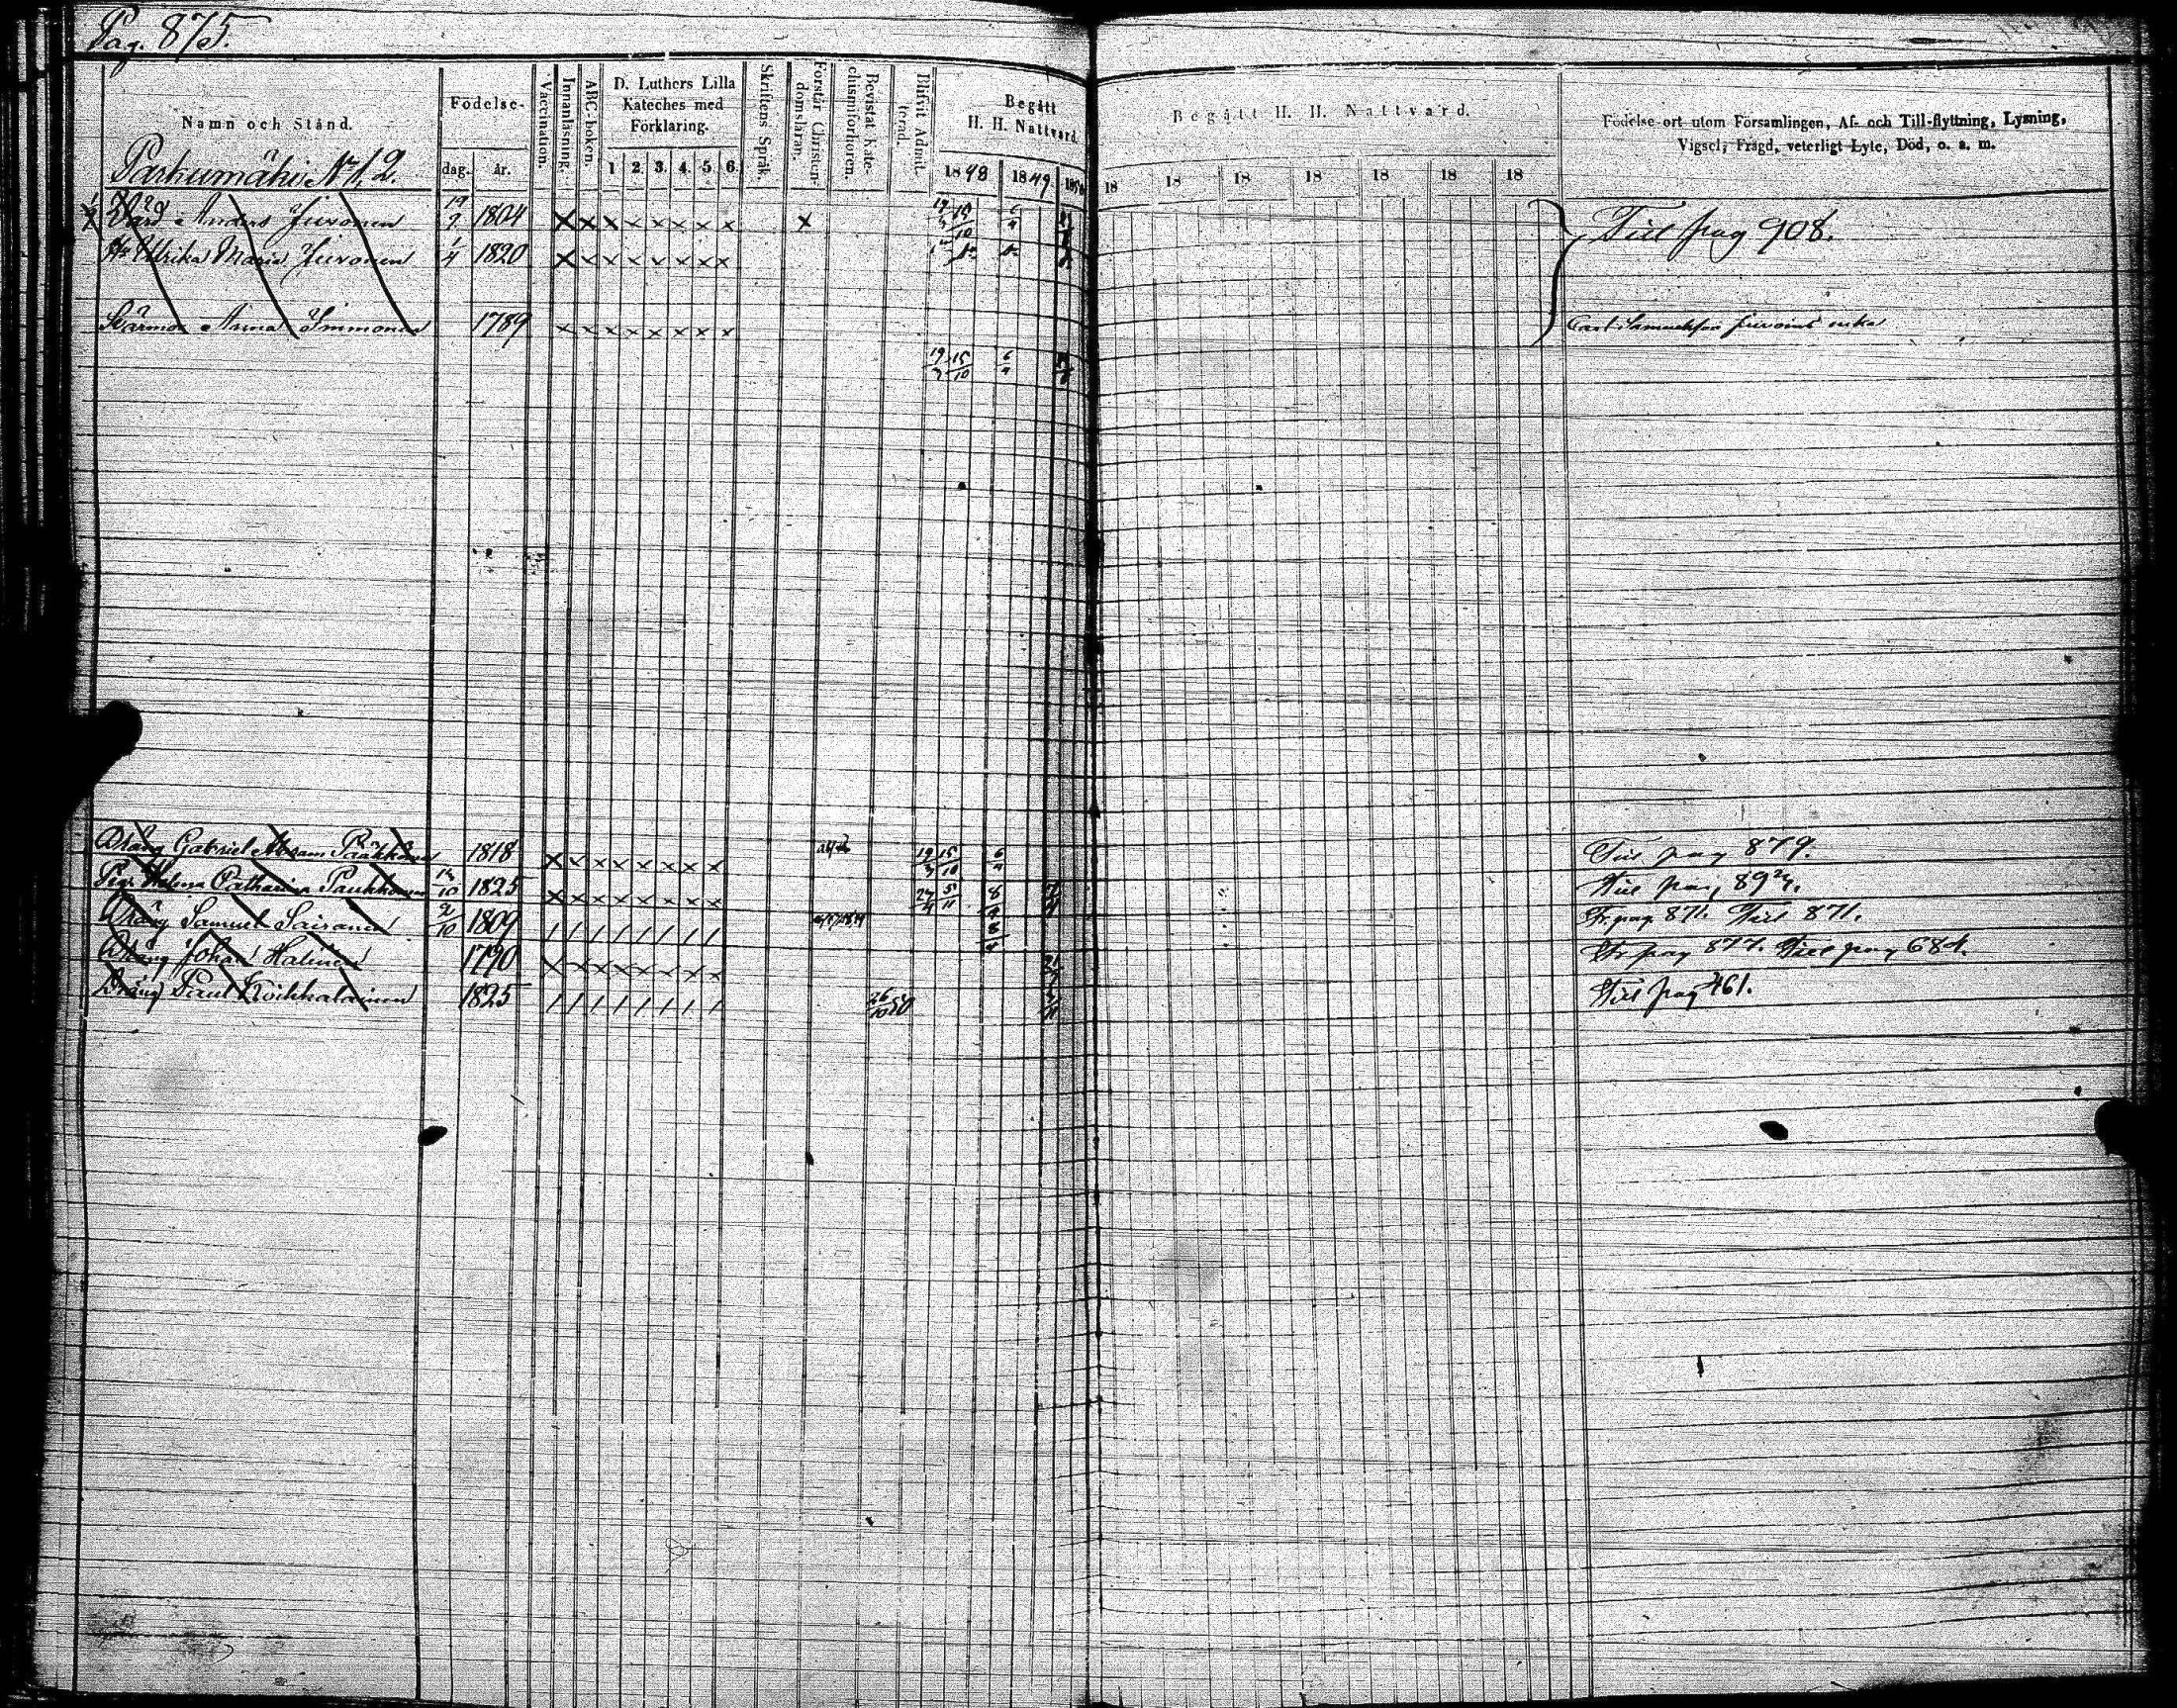 Pag. 875.
Namn och Stånd.
Födelse-
dag. år.
Vaccination.
Innanläsning.
ABC-boken.
D. Luthers Lilla
Kateches med
Förklaring.
1 2. 3. 4. 5. 6.
Skriftens Språk.
Förstår Christen-
domsläran.
Bevistat Kate-
chismiförhören.
Blifvit Admit-
terad.
Begått
H. H. Nattvard.
1848 1849 1850
Begått H. H. Nattvard.
18 18 18 18 18 18 18
Födelse-ort utom Församlingen, Af- och Till-flyttning, Lysning,
Vigsel, Frägd, veterligt Lyte, Död, o. a. m.
Parkumäki N 12.
Anders Juvonen 19/9 1804 x x x x x x x x x 15/10 6/4 Till pag 908.
Hu Ulrika Maria Juvonen 1/4 1820 x x x x x x x x
Svärmor Anna Immonen 1789 x x x x x x x x Carl Samuelsson Juvoins enka
19/3 15/10 6/4
Dräng Gabriel Abram Pääkkönen 1818 x x x x x x x x 19/3 15/10 6/4 Till pag 879.
Pig. Helena Catharina Paukkonen 1825 x x x x x x x x 5/11 Till pag 892.
Dräng Samuel Sairanen 9/10 1809 / / / / / / / / Fr. pag. 871. Till 871.
Dräng Johan Halinen 1790 x x x x x x x x Fr pag 877. Till pag 684.
Dräng Paul Köikkalainen 1825 / / / / / / / / 26/10 50 Till pag 461.